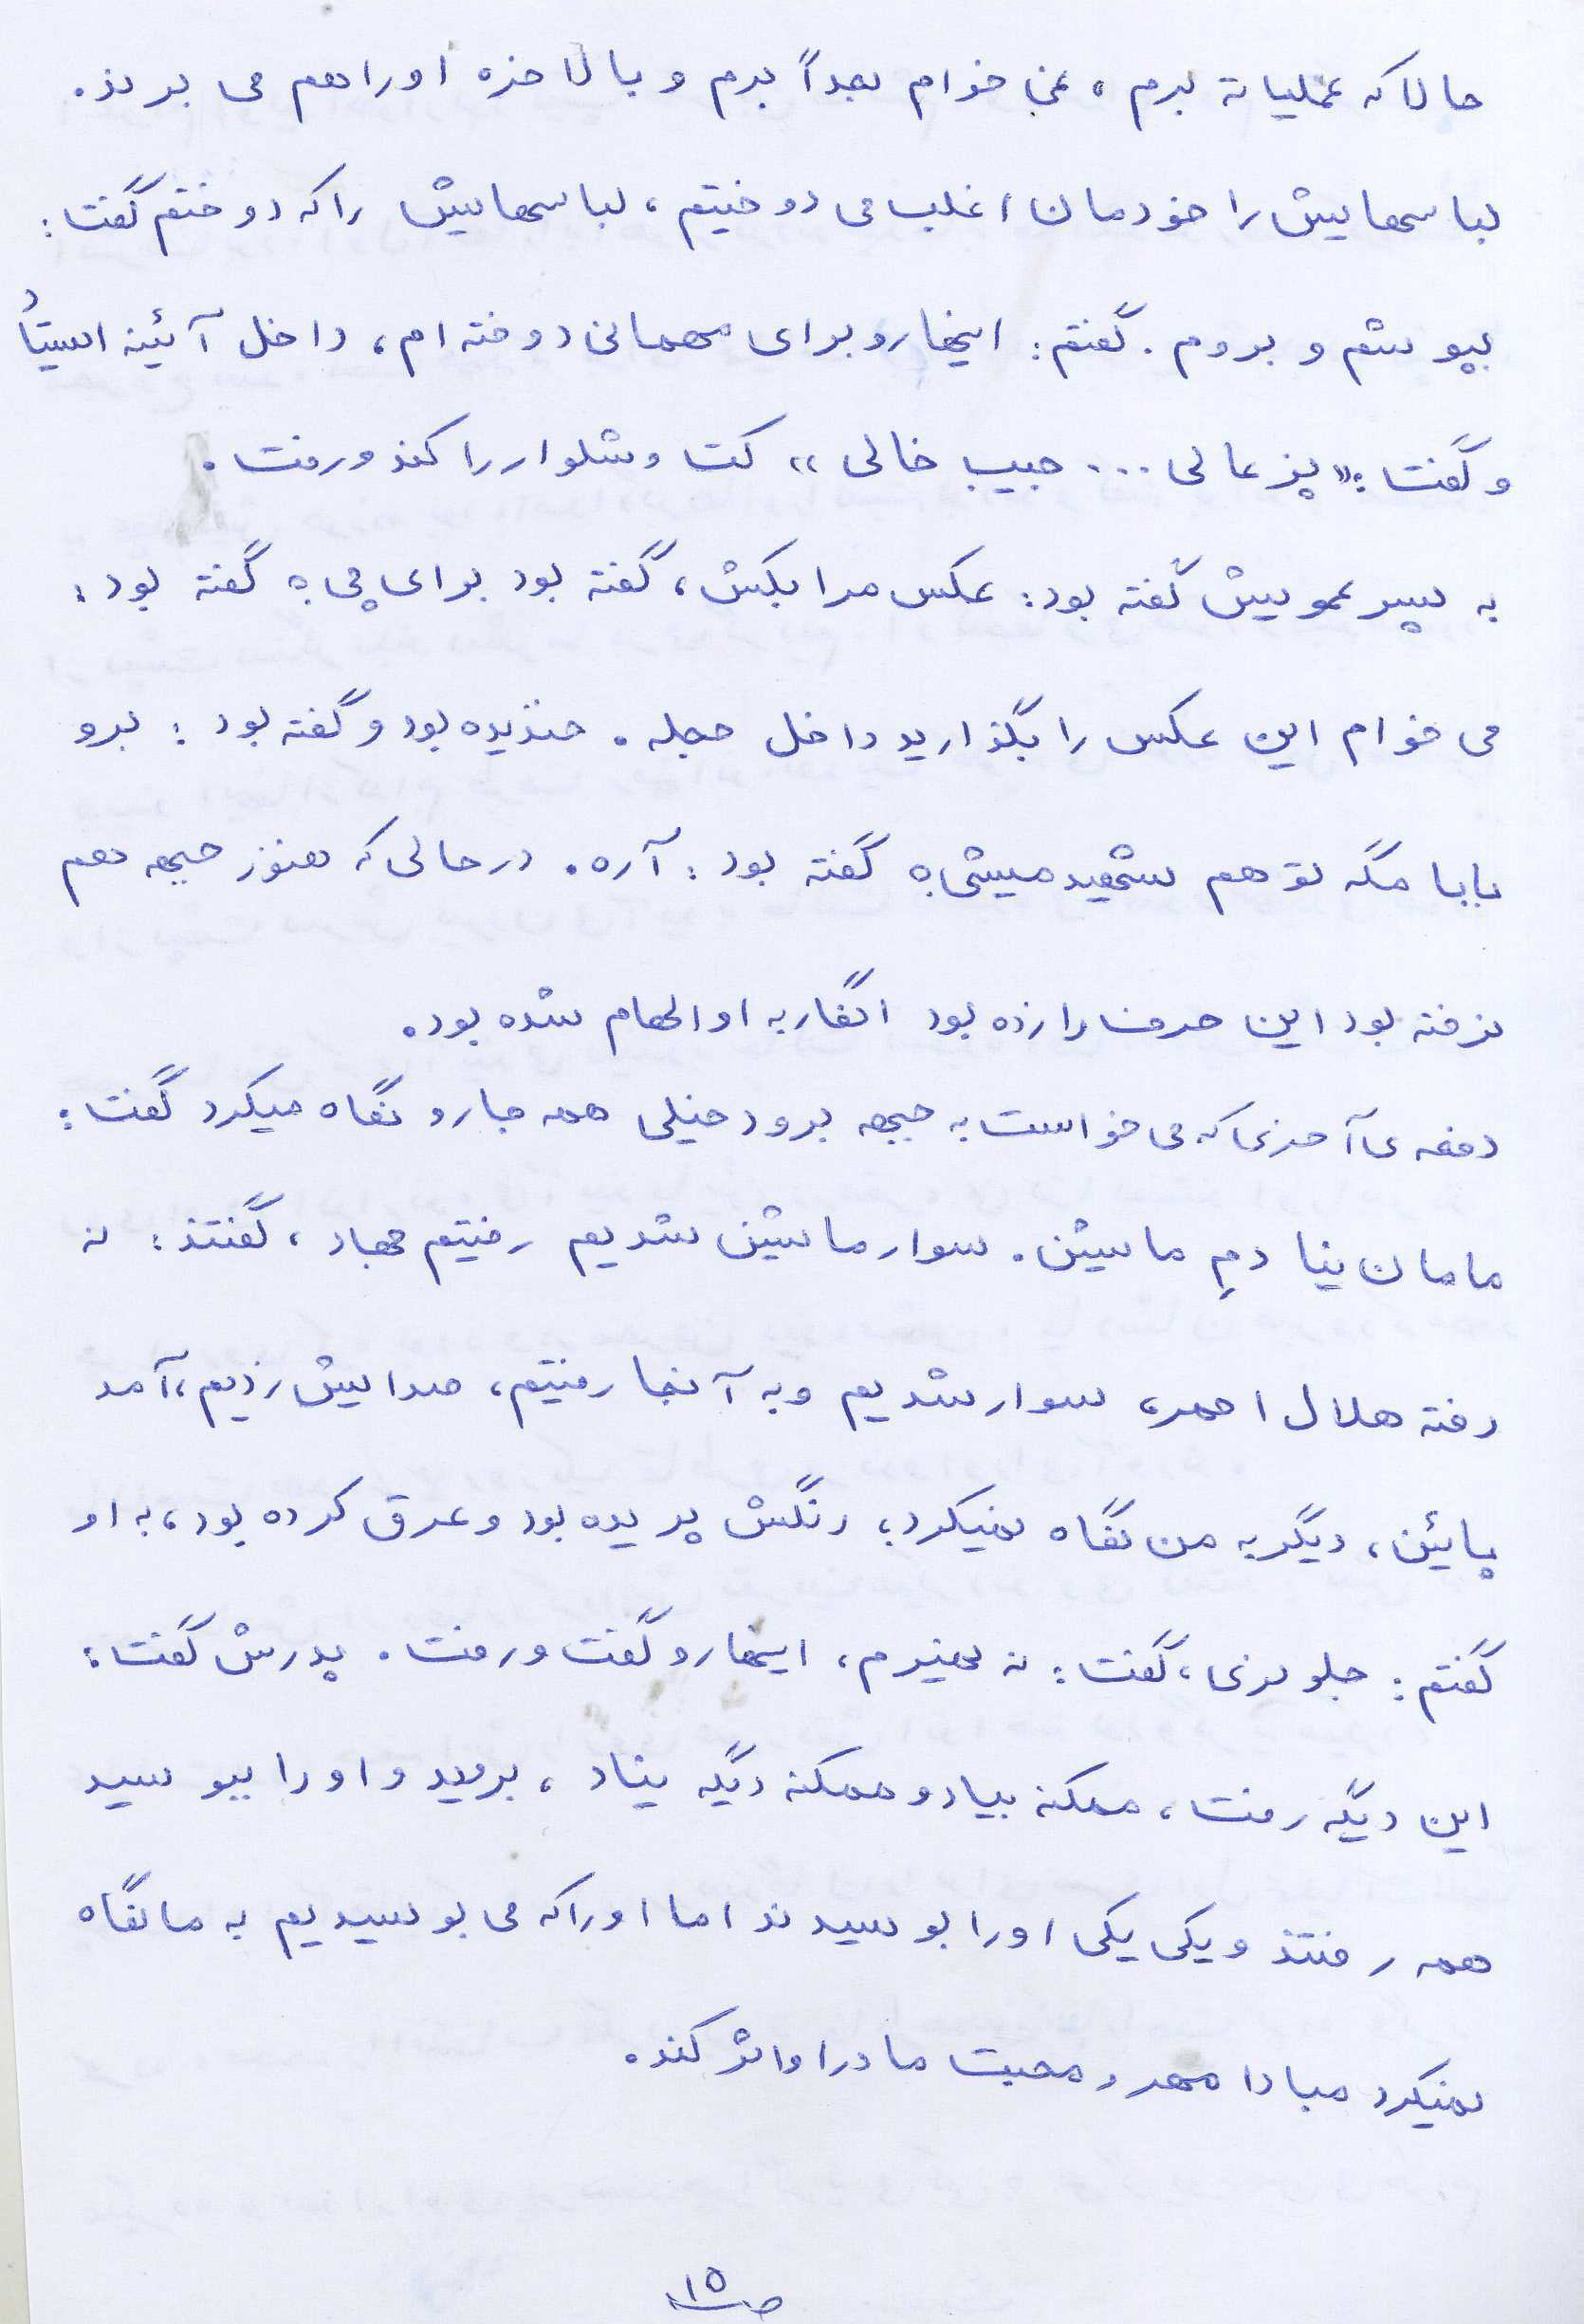 حالا که عملیاته برم، نمی خوام بعداً برم و بالاخره او را هم می برند.
لباسهایش را خودمان اغلب می دوختیم، لباسهایش را که دوختم گفت:
بپوشم و بروم. گفتم: اینهارو برای مهمانی دوخته ام، داخل آئینه ایستاد
و گفت: «پز عالی ... جیب خالی» کت و شلوار را کند و رفت.
به پسر عمویش گفته بود: عکس مرا بکش، گفته بود برای چی؟ گفته بود:
می خوام این عکس را بگذارید داخل حجله. خندیده بود و گفته بود: برو
بابا مگه تو هم شهید میشی؟ گفته بود: آره. در حالی که هنوز جبهه هم
نرفته بود این حرف را زده بود انگار به او الهام شده بود.
دفعه ی آخری که می خواست به جبهه برود خیلی همه جا رو نگاه میکرد گفت:
مامان نیا دمِ ماشین. سوار ماشین شدیم رفتیم جهاد، گفتند: نه
رفته هلال احمر، سوار شدیم و به آنجا رفتیم، صدایش زدیم، آمد
پائین، دیگر به من نگاه نمیکرد، رنگش پریده بود و عرق کرده بود، به او
گفتم: جلو نری، گفت: نه نمیرم، اینهارو گفت و رفت. پدرش گفت:
این دیگه رفت، ممکنه بیاد و ممکنه دیگه نیاد، بروید و او را ببوسید
همه رفتند و یکی یکی او را بوسیدند اما او را که می بوسیدیم به ما نگاه
نمیکرد مبادا مهر و محبت مادر او اثر کند.
ص ۱۵